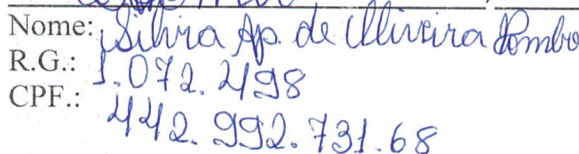 Nome: Silvia Ap. de Oliveira Pombo
R.G.: 1.072.498
CPF.: 442.992.731.68